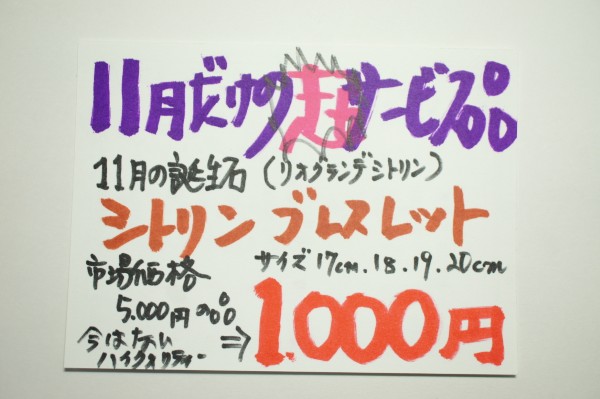 11月だけの超サービス品
11月の誕生石（リオグランデシトリン）
シトリン ブレスレット
サイズ 17cm.18.19.20cm
市場価格
5.000円の品
⇒ 1.000円
今はない
ハイクオリティー